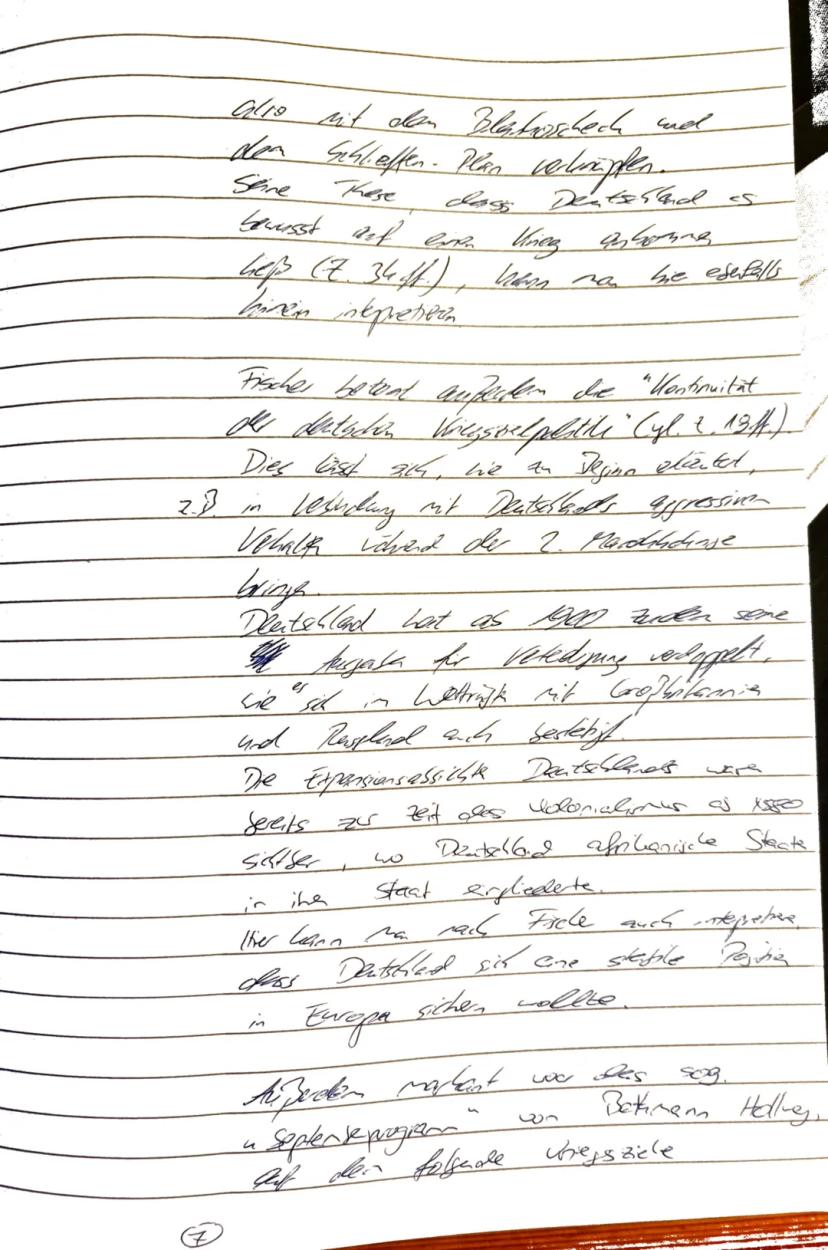 also mit dem Blankoscheck und
dem Schlieffen-Plan verknüpfen.
Seine These, dass Deutschland es
bewusst auf einen Krieg ankommen
ließ (Z. 34 ff.), kann man hie ebenfalls
hinein interpretieren
Fischer betont außerdem die "Kontinuität
der deutschen Kriegszielpolitik" (vgl. Z. 19 ff.).
Dies lässt sich, wie zu Beginn erläutert,
z.B. in Verbindung mit Deutschlands aggressiven
Verhalten während der 2. Marokkokrise
bringen.
Deutschland hat ab 1900 zudem seine
Ausgaben für Verteidigung verdoppelt,
wie es sich im Wettrüsten mit Großbritannien
und Russland auch bestätigt.
Die Expansionsabsichten Deutschlands waren
bereits zur Zeit des Kolonialismus ab 1880
sichtbar, wo Deutschland afrikanische Staaten
in ihren Staat eingliederte.
Hier kann man nach Fischer auch interpretieren,
dass Deutschland sich eine stabile Position
in Europa sichern wollte.
Außerdem markant war das sog.
"Septemberprogramm" von Bethmann Hollweg,
auf dem folgende Kriegsziele
7